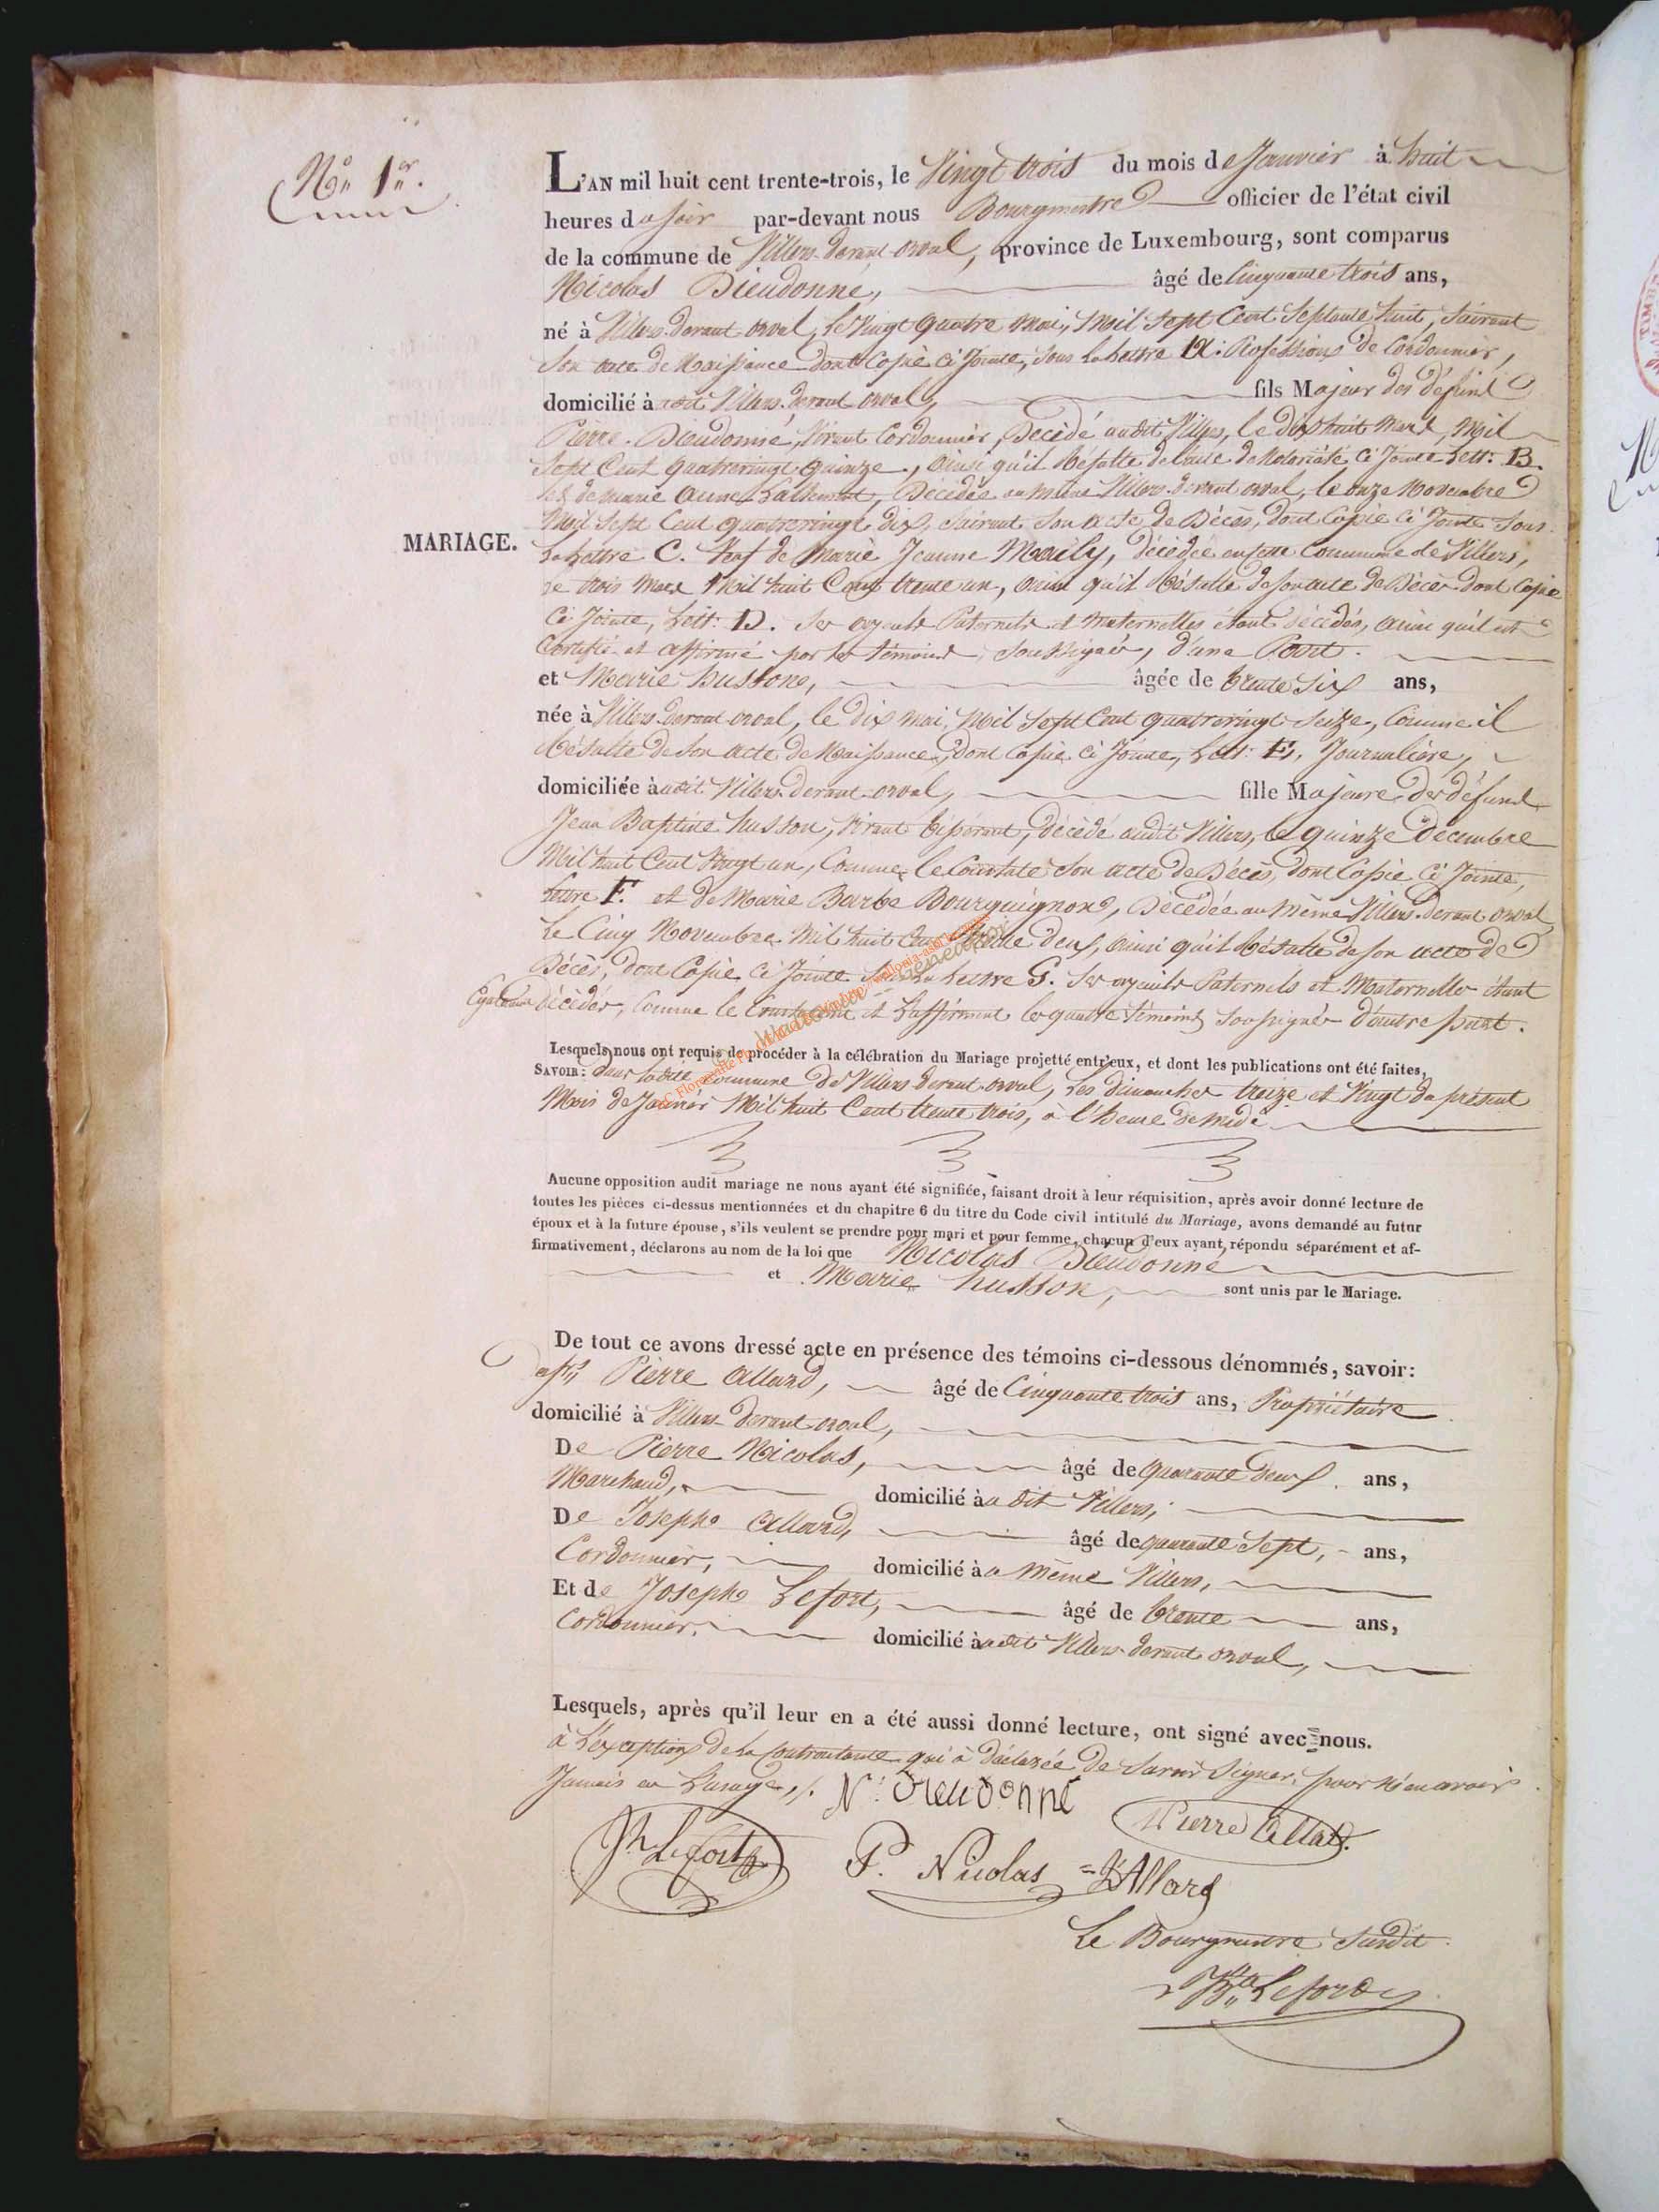 N.º 1.er
L'AN mil huit cent trente-trois, le Vingt trois du mois de Janvier à huit
heures du soir par-devant nous Bourgmestre officier de l'état civil
de la commune de Villers-devant-orval, province de Luxembourg, sont comparus
Nicolas Dieudonné, âgé de Cinquante trois ans,
né à Villers-devant-orval, le Vingt quatre mai, Mil Sept Cent Septante huit, Suivant
Son acte de Naissance dont Copie ci Jointe, Sous la lettre A: Profession de Cordonnier,
domicilié à udit Villers-devant orval, fils Majeur des défunt
Pierre Dieudonné, Vivant Cordonnier, Décédé audit Villers, le dix huit Mars, Mil
Sept Cent quatrevingt quinze, ainsi qu'il Résulte de l'acte de Notoriété ci Jointe Lett: B.
et de Marie Anne Lallement, Décédée au même Villers-devant orval, le onze Novembre
Mil Sept Cent quatrevingt dix, Suivant Son acte de Décès, dont Copie ci Jointe Sous
MARIAGE.
La lettre C. Veuf de Marie Jeanne Maily, décédée en cette Commune de Villers,
le trois Mars Mil huit Cent trente un, ainsi qu'il Résulte de son acte de Décès dont Copie
ci Jointe, Lett: D. Ses ayeuls Paternels et Maternelles étant décédés, ainsi qu'il est
Certifié et affirmé par les témoins Soussignés, d'une Part.
et Marie husson, âgée de trente Six ans,
née à Villers-devant orval, le dix mai, Mil Sept Cent quatrevingt Seize, Comme il
Résulte de Son acte de Naissance, dont Copie ci Jointe, Lett: E, Journalière,
domiciliée à udit Villers devant-orval, fille Majeure des défunt
Jean Baptiste husson, Vivant tisserant, décédé audit Villers, le quinze décembre
Mil huit Cent Vingt un, Comme le Constate Son acte de Décès, dont Copie ci Jointe,
Lettre F. et de Marie Barbe Bourguignon, Décédée au même Villers-devant orval
Le Cinq Novembre Mil huit Cent trente deux, ainsi qu'il Résulte de son acte de
Décès, dont Copie ci Jointe Sous la lettre G. Ses ayeuls Paternels et Maternelles étant
Egalement décédés, Comme le Constatent et L'affirment les quatre témoins Soussignés d'autre part.
Lesquels nous ont requis de procéder à la célébration du Mariage projetté entr'eux, et dont les publications ont été faites,
SAVOIR: dans ladite Commune de Villers devant-orval, Les dimanches treize et Vingt du présent
Mois de Janvier Mil huit Cent trente trois, à l'heure de midi
Aucune opposition audit mariage ne nous ayant été signifiée, faisant droit à leur réquisition, après avoir donné lecture de
toutes les pièces ci-dessus mentionnées et du chapitre 6 du titre du Code civil intitulé du Mariage, avons demandé au futur
époux et à la future épouse, s'ils veulent se prendre pour mari et pour femme, chacun d'eux ayant répondu séparément et af-
firmativement, déclarons au nom de la loi que Nicolas Dieudonné
et Marie husson, sont unis par le Mariage.
De tout ce avons dressé acte en présence des témoins ci-dessous dénommés, savoir:
Pierre Allard, âgé de Cinquante trois ans, Propriétaire
domicilié à Villers-devant orval,
De Pierre Nicolas, âgé de quarante deux ans,
Marchand, domicilié à u dit Villers,
De Joseph Allard, âgé de quarante Sept, ans,
Cordonnier, domicilié à u même Villers,
Et de Joseph Lefort, âgé de trente ans,
Cordonnier, domicilié à udit Villers-devant orval,
Lesquels, après qu'il leur en a été aussi donné lecture, ont signé avec nous.
à L'exception de la Contractante qui à déclarée de Savoir Signer, pour n'en avoir
Jamais eu L'usage,
N: Dieudonné
Pierre Allard
Jh Lefort
P. Nicolas
J Allard
Le Bourgmestre Susdit
Bte Lefort